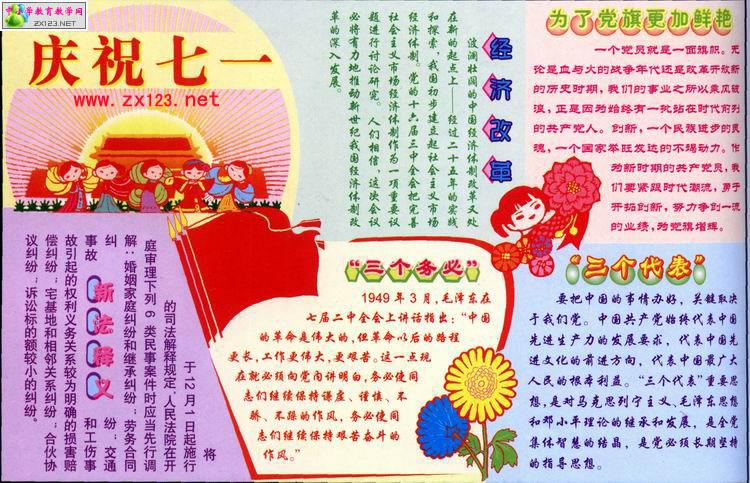 中小学教育教学网
ZX123.NET
庆祝七一
www.zx123.net
经济改革
波澜壮阔的中国经济体制改革又处
在新的起点上——经过二十五年的实践
和探索，我国初步建立起社会主义市场
经济体制。党的十六届三中全会把完善
社会主义市场经济体制作为一项重要议
题进行讨论研究。人们相信，这次会议
必将有力地推动新世纪我国经济体制改
革的深入发展。
为了党旗更加鲜艳
一个党员就是一面旗帜。无
论是血与火的战争年代还是改革开放新
的历史时期，我们的事业之所以乘风破
浪，正是因为始终有一批站在时代前列
的共产党人。创新，一个民族进步的灵
魂，一个国家兴旺发达的不竭动力。作
为新时期的共产党员，我
们要紧跟时代潮流，勇于
开拓创新，努力争创一流
的业绩，为党旗增辉。
新法释义
将
于12月1日起施行
的司法解释规定，人民法院在开
庭审理下列6类民事案件时应当先行调
解：婚姻家庭纠纷和继承纠纷；劳务合同
纠纷；交通
事故和工伤事
故引起的权利义务关系较为明确的损害赔
偿纠纷；宅基地和相邻关系纠纷；合伙协
议纠纷；诉讼标的额较小的纠纷。
“三个务必”
1949年3月，毛泽东在
七届二中全会上讲话指出：“中国
的革命是伟大的，但革命以后的路程
更长，工作更伟大，更艰苦。这一点现
在就必须向党内讲明白，务必使同
志们继续保持谦虚、谨慎、不
骄、不躁的作风，务必使同
志们继续保持艰苦奋斗的
作风。”
“三个代表”
要把中国的事情办好，关键取决
于我们党。中国共产党始终代表中国
先进生产力的发展要求，代表中国先
进文化的前进方向，代表中国最广大
人民的根本利益。“三个代表”重要思
想，是对马克思列宁主义、毛泽东思想
和邓小平理论的继承和发展，是全党
集体智慧的结晶，是党必须长期坚持
的指导思想。